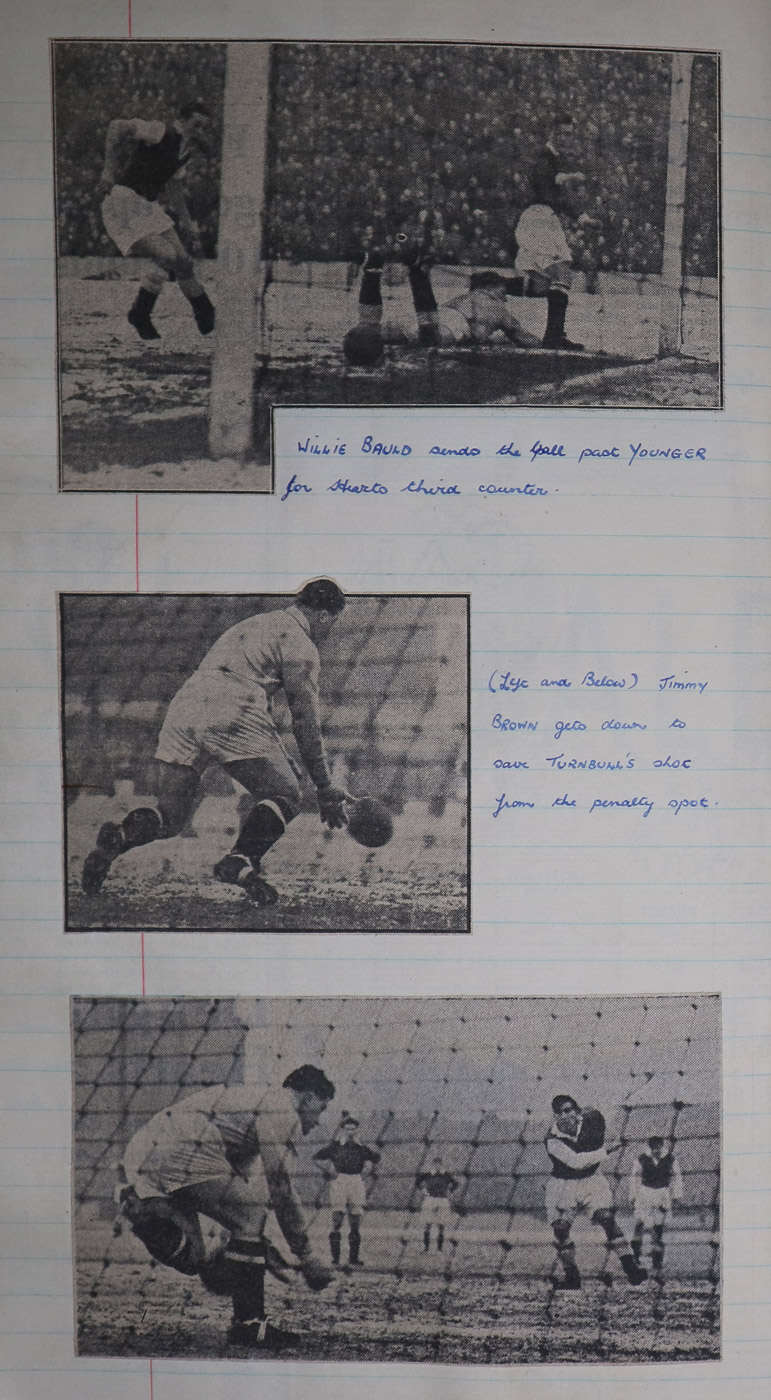 WILLIE BAULD sends the ball past YOUNGER
for Hearts third counter.
(Left and Below) Jimmy
BROWN gets down to
save TURNBULL'S shot
from the penalty spot.